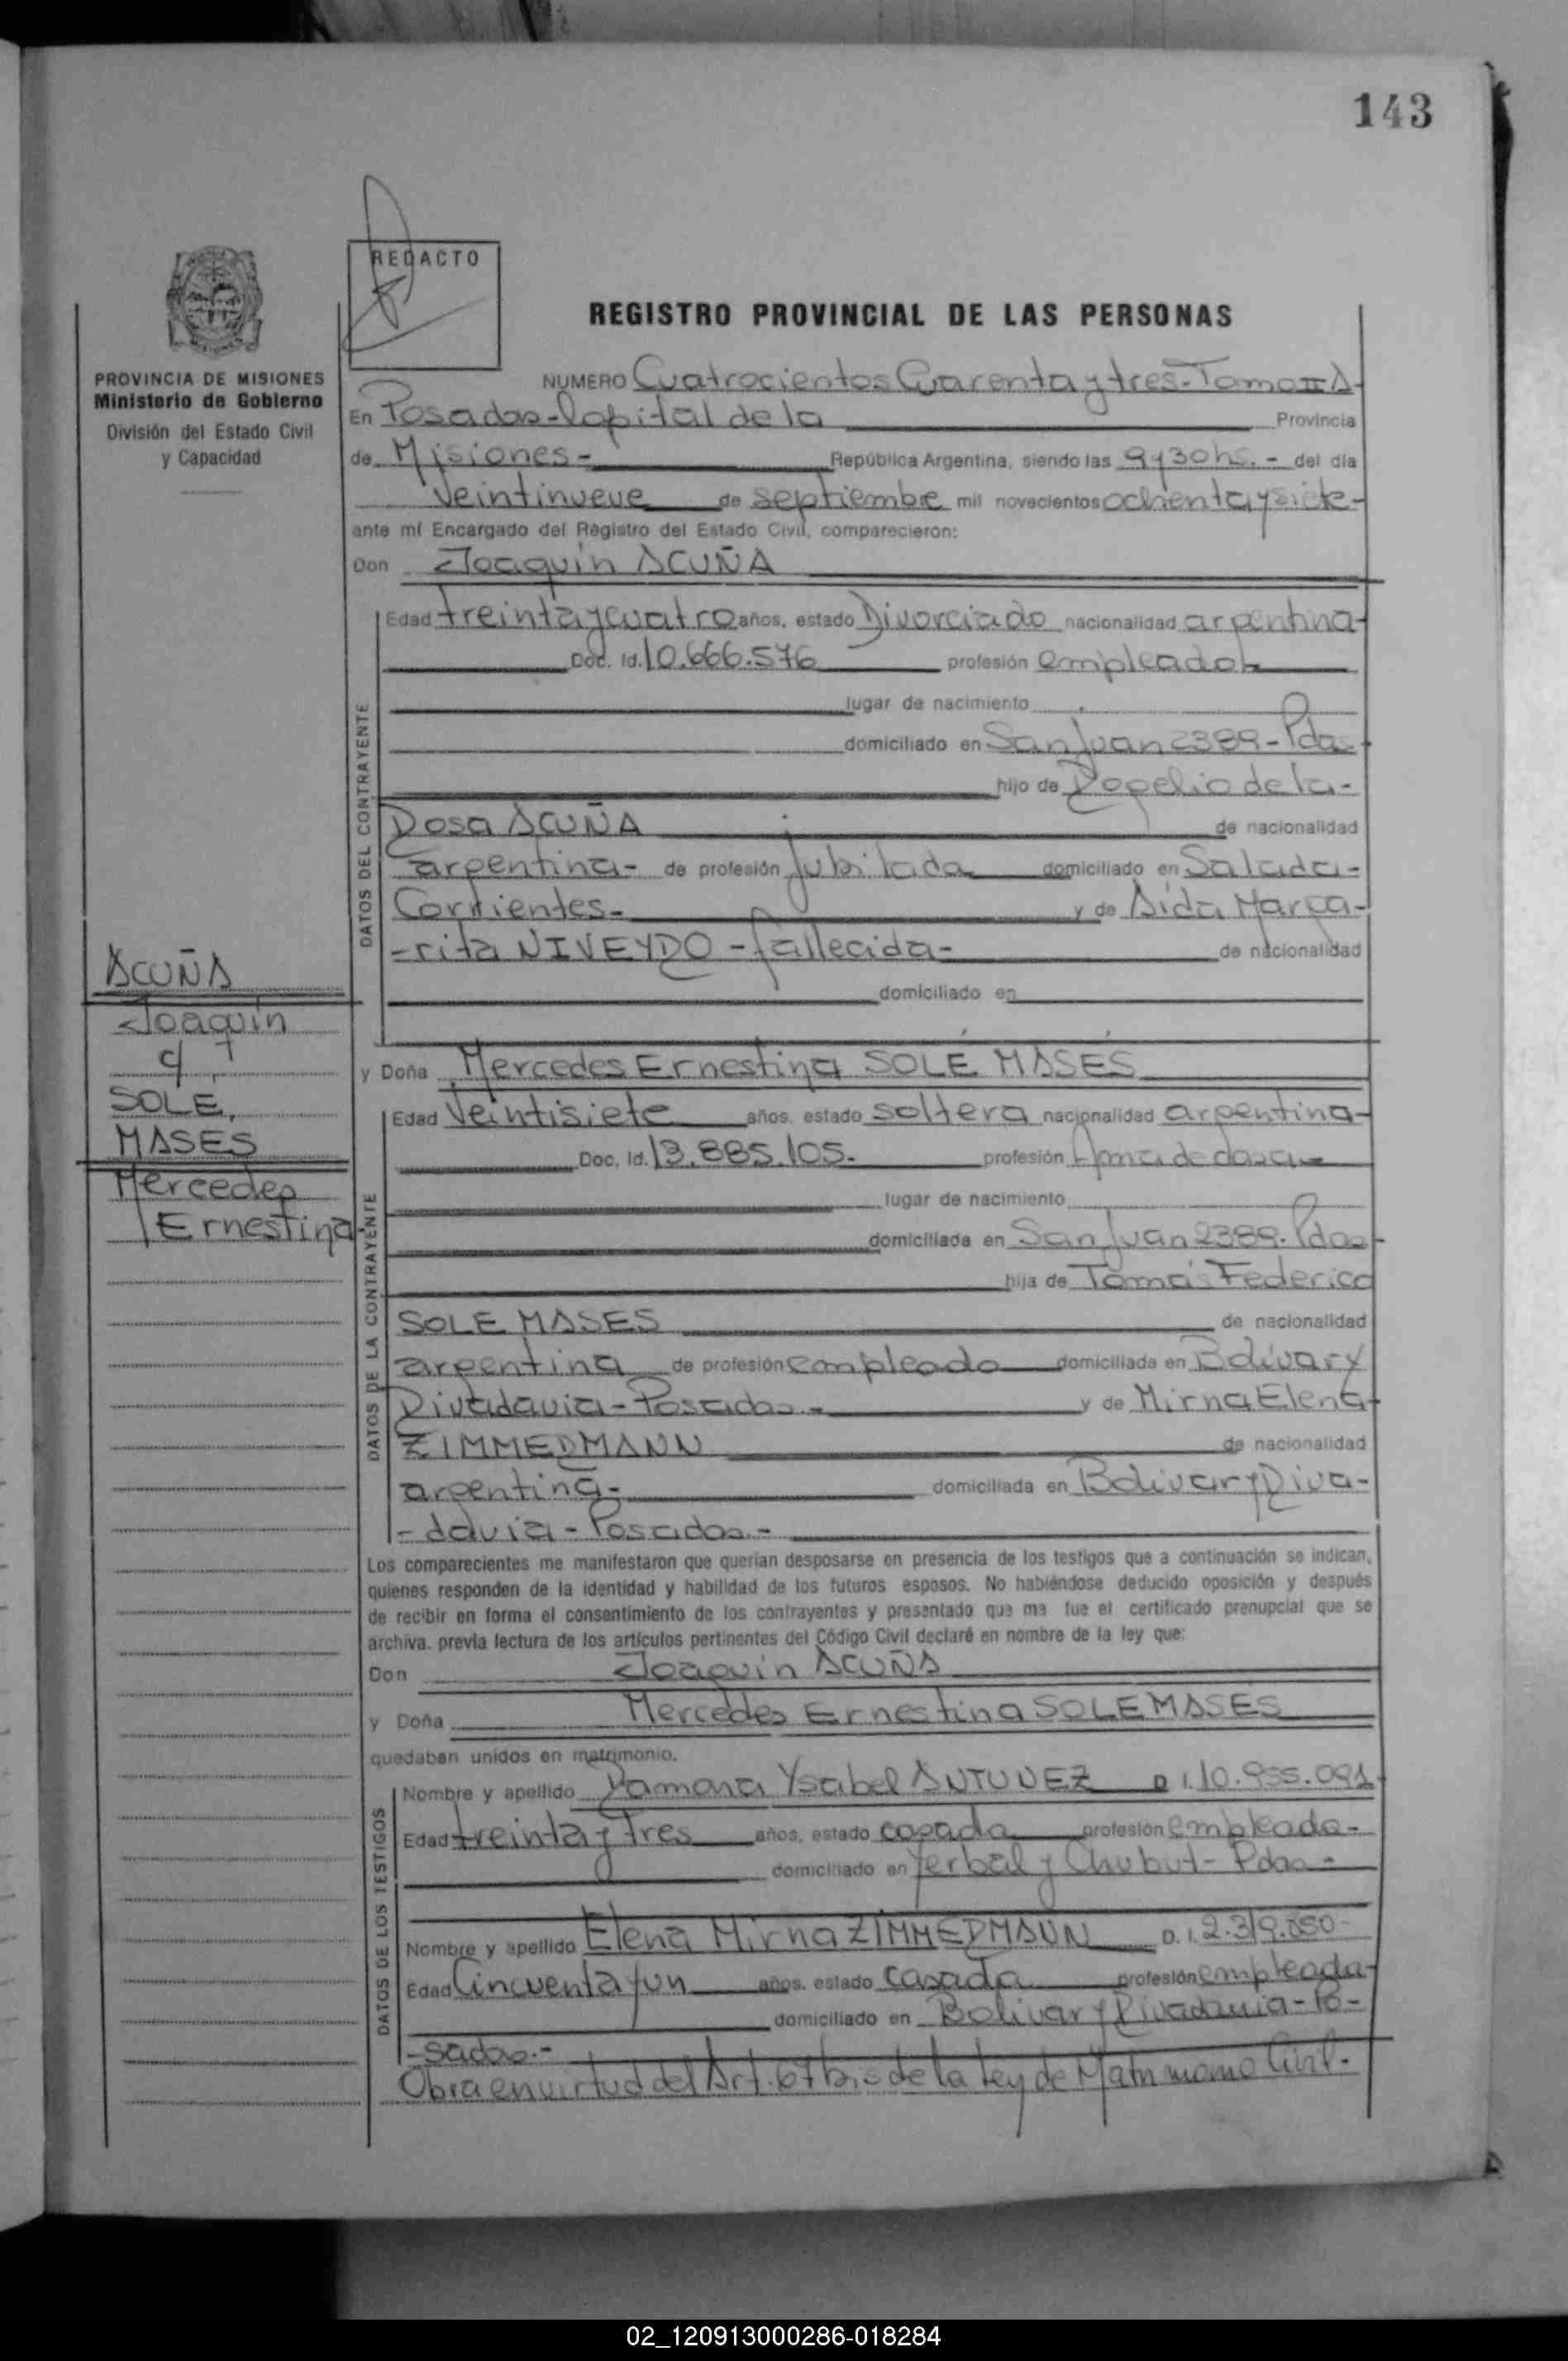 143
REDACTO
REGISTRO PROVINCIAL DE LAS PERSONAS
PROVINCIA DE MISIONES
Ministerio de Gobierno
División del Estado Civil
y Capacidad
NUMERO Cuatrocientos Cuarenta y tres - Tomo II A -
En Posadas - Capital de la Provincia
de Misiones - República Argentina, siendo las 9 y 30 hs. - del día
Veintinueve de septiembre mil novecientos ochenta y siete -
ante mí Encargado del Registro del Estado Civil, comparecieron:
Don Joaquín ACUÑA
DATOS DEL CONTRAYENTE
Edad treinta y cuatro años, estado Divorciado nacionalidad argentina -
Doc. Id. 10.666.576 profesión empleado
lugar de nacimiento
domiciliado en San Juan 2389 - Pdas.
hijo de Rogelio de la -
Rosa ACUÑA de nacionalidad
argentina - de profesión Jubilada domiciliado en Salada -
Corrientes - y de Aida Marga -
- rita NIVEYRO - fallecida - de nacionalidad
domiciliado en
ACUÑA
Joaquín
c/
SOLE,
MASES
Mercedes
Ernestina
y Doña Mercedes Ernestina SOLÉ MASES
DATOS DE LA CONTRAYENTE
Edad Veintisiete años, estado soltera nacionalidad argentina -
Doc. Id. 13.885.105 - profesión Ama de casa
lugar de nacimiento
domiciliada en San Juan 2389 - Pdas
hija de Tomás Federico
SOLE MASES de nacionalidad
argentina de profesión empleado domiciliada en Bolívar y
Rivadavia - Posadas - y de Mirna Elena -
ZIMMERMANN de nacionalidad
argentina - domiciliada en Bolívar y Riva -
- davia - Posadas. -
Los comparecientes me manifestaron que querían desposarse en presencia de los testigos que a continuación se indican,
quienes responden de la identidad y habilidad de los futuros esposos. No habiéndose deducido oposición y después
de recibir en forma el consentimiento de los contrayentes y presentado que me fue el certificado prenupcial que se
archiva. previa lectura de los artículos pertinentes del Código Civil declaré en nombre de la ley que:
Don Joaquín ACUÑA
y Doña Mercedes Ernestina SOLE MASES
quedaban unidos en matrimonio.
DATOS DE LOS TESTIGOS
Nombre y apellido Ramona Ysabel ANTUNEZ D.I. 10.955.091
Edad treinta y Tres años, estado casada profesión empleada -
domiciliado en Yerbal y Chubut - Pdas -
Nombre y apellido Elena Mirna ZIMMERMANN D.I. 2.319.850 -
Edad Cincuenta y un años. estado Casada profesión empleada -
domiciliado en Bolívar y Rivadavia - Po -
- sadas. -
Obra en virtud del Art. 67 bis de la Ley de Matrimonio Civil. -
02_120913000286-018284